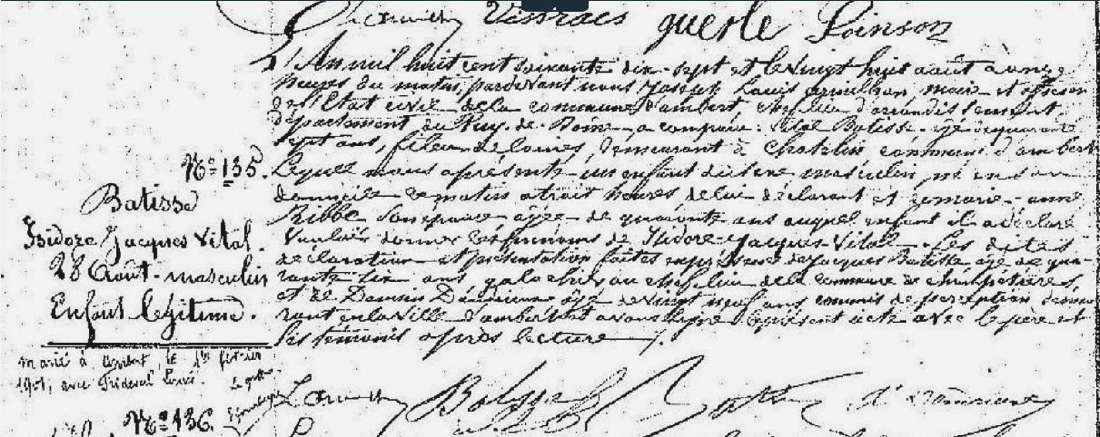 Vissracs guerle Poinson
L'An mil huit cent soixante dix-sept et le vingt huit août à onze
heures du matin, pardevant nous Joseph Louis maire et officier
de l'Etat civil de la commune d'ambert chef lieu d'arrondissement
département du Puy-de-Dôme a comparu: Vital Batisse agé de quarante
sept ans, fileur de laines, demeurant à commune d'ambert
Lequel nous a présenté un enfant du sexe masculin, né en son
domicile ce matin à trois heures de lui déclarant et de marie-anne
son épouse agée de quarante ans auquel enfant il a déclaré
vouloir donner les prénoms de Isidore-Jacques-Vital. Les dites
déclaration et présentation faites en présence de Jacques Batisse agé de qua-
rante six ans galochier au chef lieu de la commune de champétières,
et de Damien agé de vingt neuf ans commis de perception demeu-
rant en la ville d'ambert et avons signé le présent acte avec le père et
les témoins après lecture ./.
N° 135.
Batisse
Isidore Jacques Vital.
28 Août - masculin
Enfant légitime.
marié à Ambert, le 1er février
1901, avec
Batisse
N° 136.